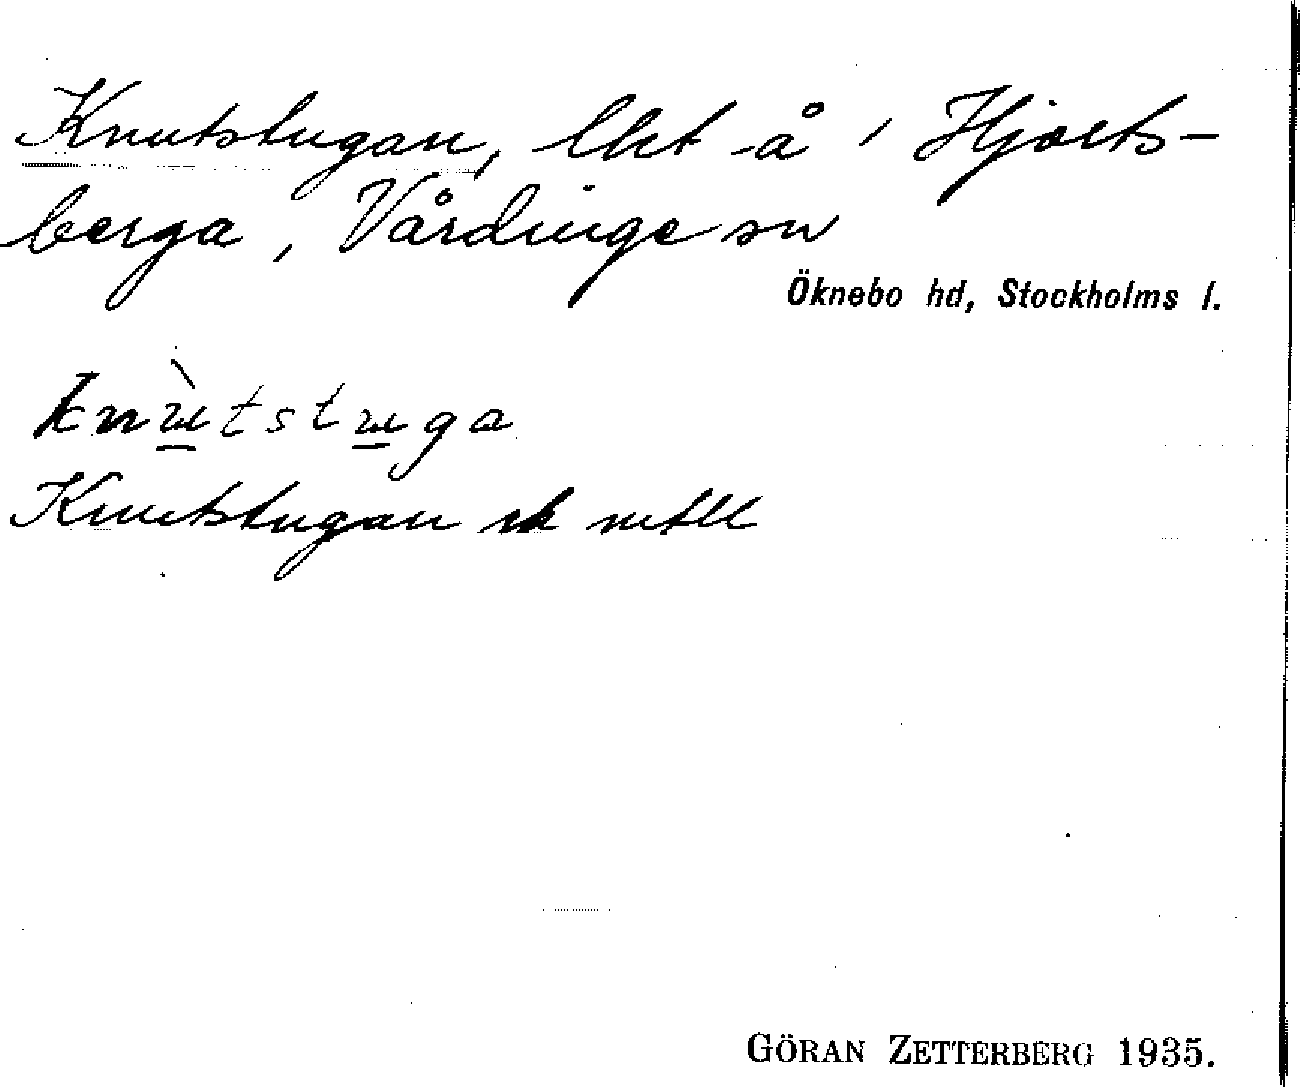 Knutstugan, lht å ' Hjorts-
berga, Vårdinge sn
Öknebo hd, Stockholms l.
knùtstuga
Knutstugan
GÖRAN ZETTERBERG 1935.